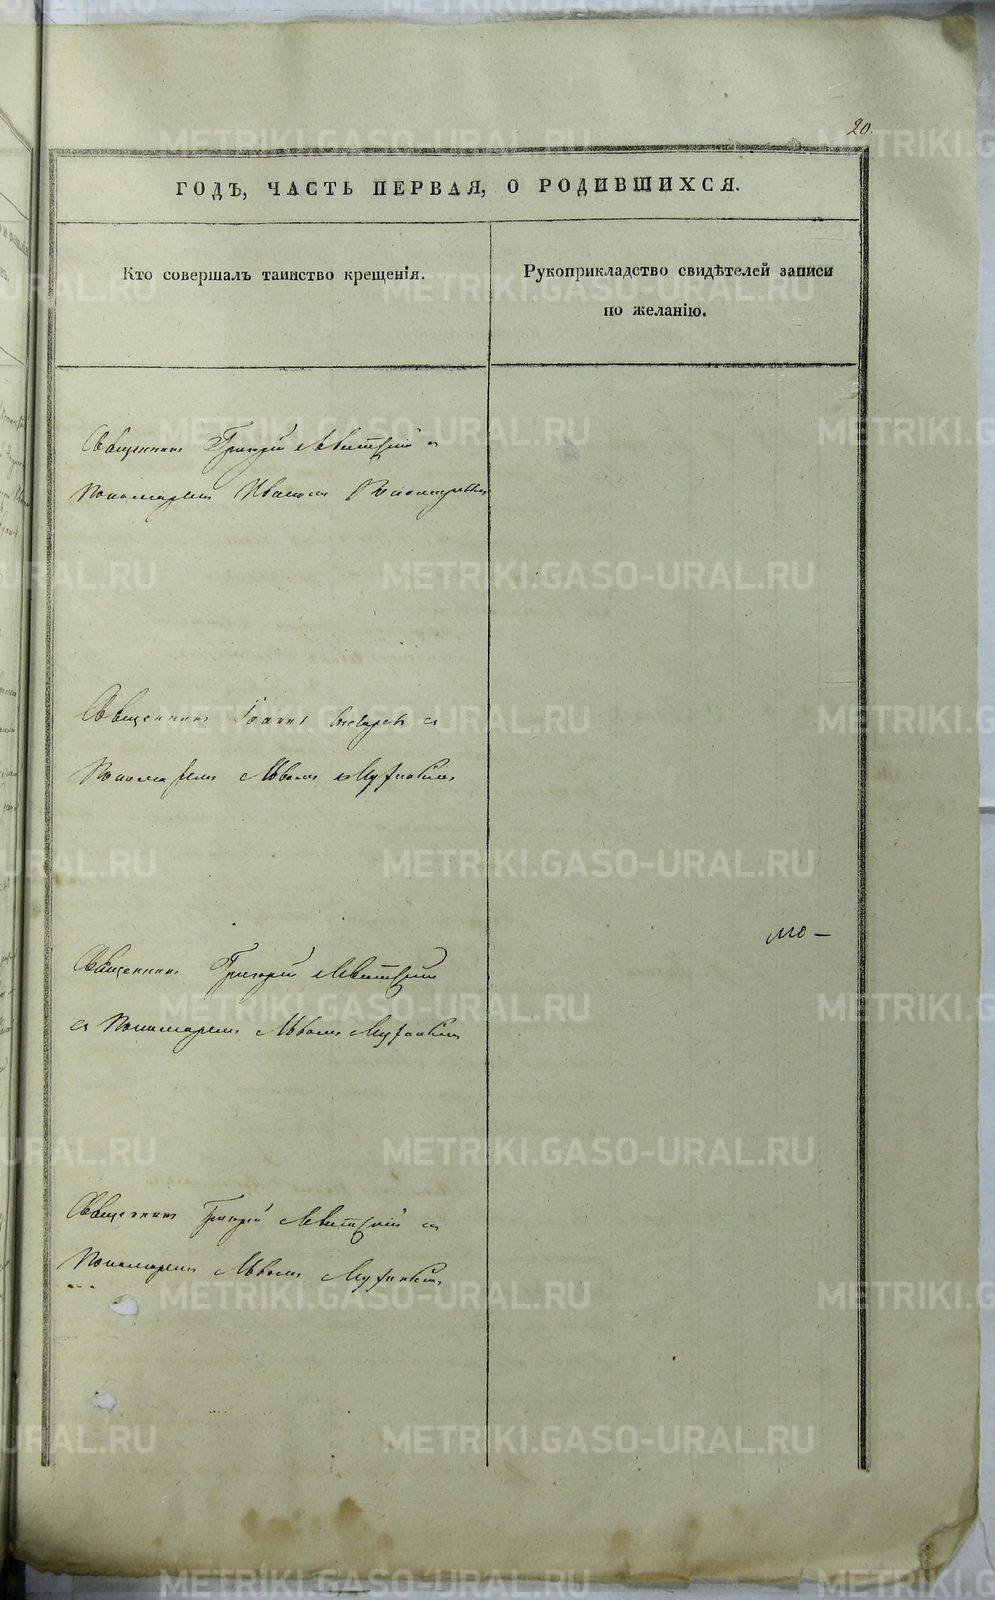 20.
ГОДЪ, ЧАСТЬ ПЕРВАЯ, О РОДИВШИХСЯ.
Кто совершалъ таинство крещенія.
Рукоприкладство свидѣтелей записи
по желанію.
Священникъ Григорій Левитскій съ
Пономаремъ Иваномъ
Священникъ Іоаннъ съ
Пономаремъ Львомъ
Священникъ Григорій Левитскій
съ Пономаремъ Львомъ
Священникъ Григорій Левитскій съ
Пономаремъ Львомъ
METRIKI.GASO-URAL.RU